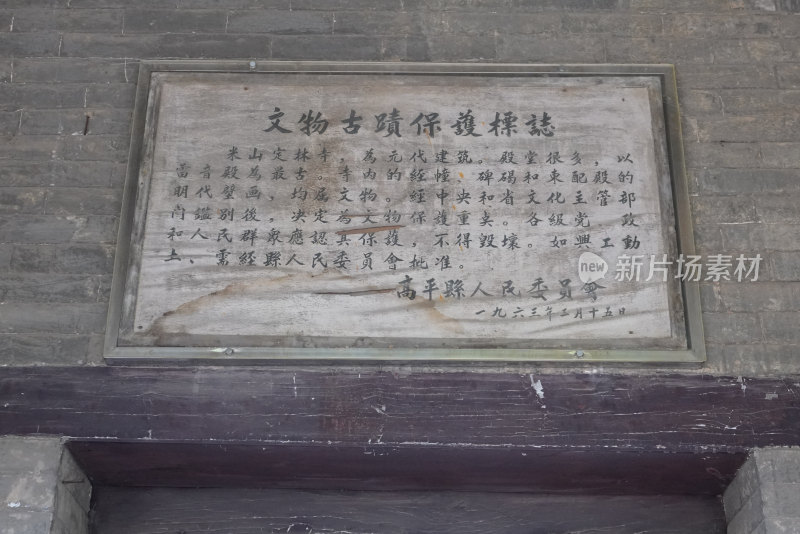 文物古蹟保護標誌
米山定林寺，為元代建筑。殿堂很多，以
雷音殿為最古。寺內的經幢、碑碣和東配殿的
明代壁画，均屬文物。經中央和省文化主管部
門鑑別後。决定為文物保護重点。各級党政
和人民群衆應認真保護，不得毀壞。如興工動
土、需經縣人民委員會批准。
高平縣人民委員會
一九六三年三月十五日
new 新片场素材